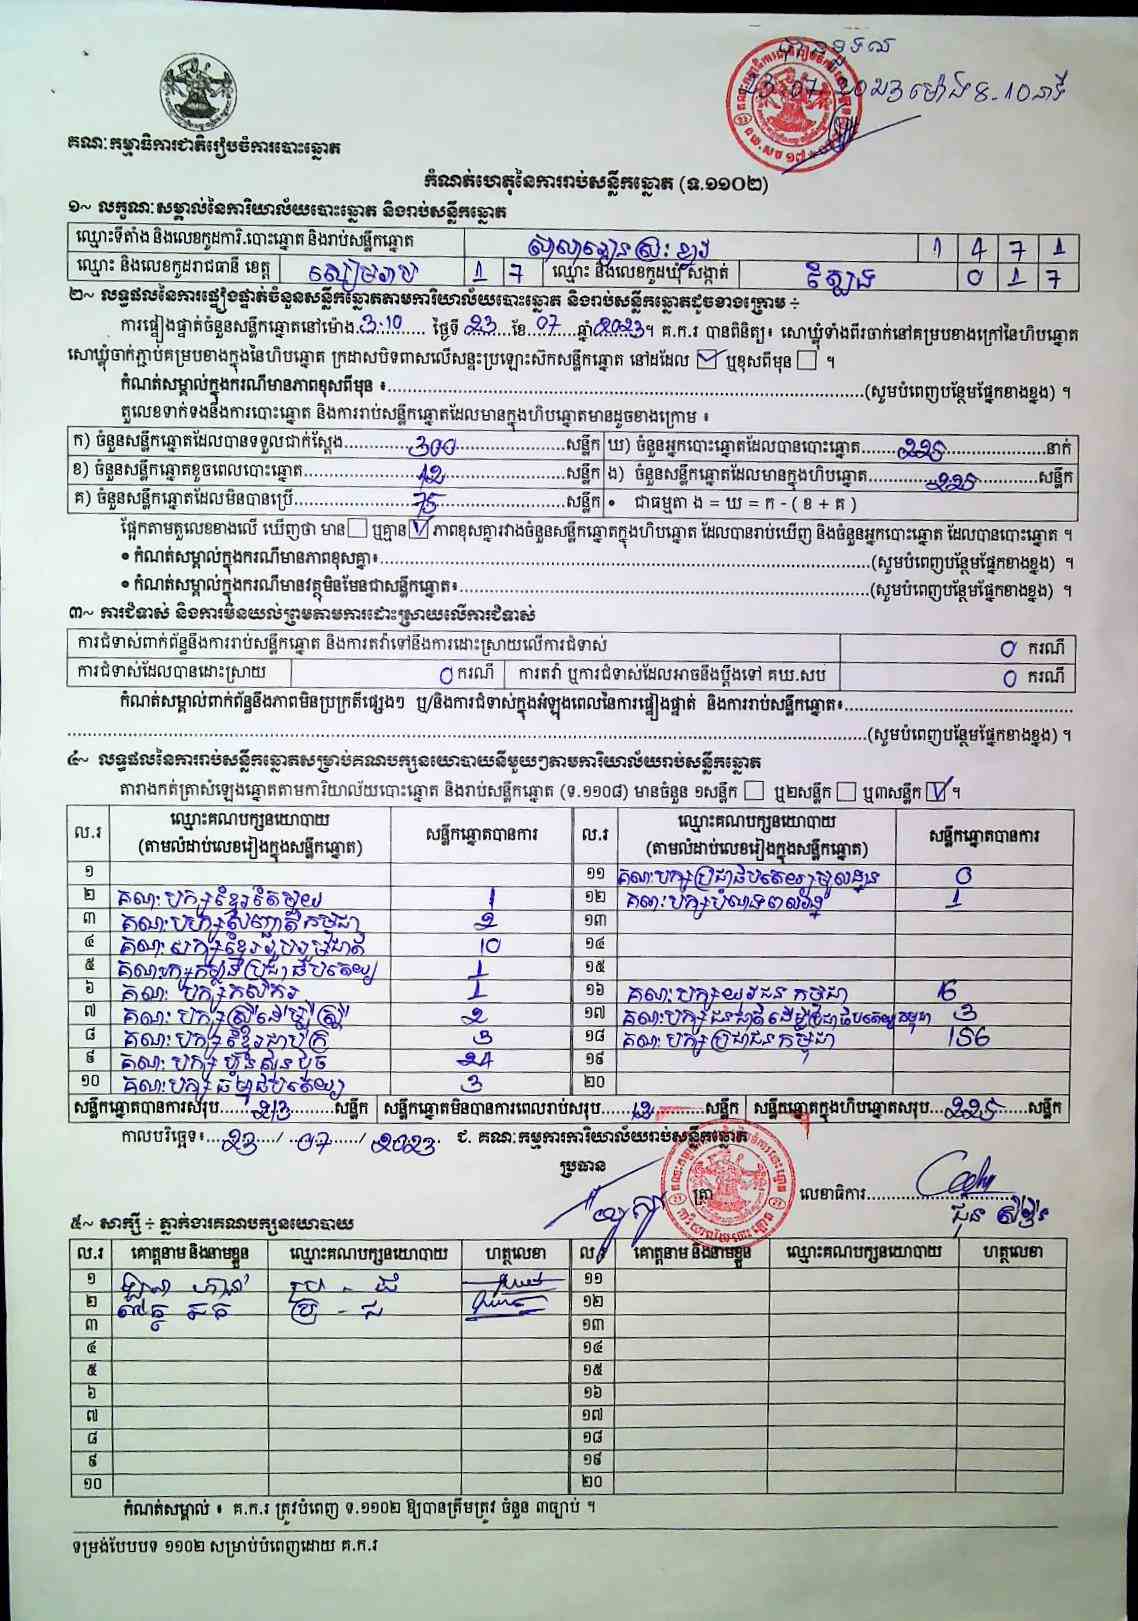 23.07.2023 ម៉ោង 8.10 នាទី
គណៈកម្មាធិការជាតិរៀបចំការបោះឆ្នោត
កំណត់ហេតុនៃការរាប់សន្លឹកឆ្នោត (ទ.១១០២)
១~ លក្ខណៈសម្គាល់នៃការិយាល័យបោះឆ្នោត និងរាប់សន្លឹកឆ្នោត
ឈ្មោះទីតាំង និងលេខកូដការិ.បោះឆ្នោត និងរាប់សន្លឹកឆ្នោត 1 4 7 1
ឈ្មោះ និងលេខកូដរាជធានី ខេត្ត សៀមរាប 1 7 ឈ្មោះ និងលេខកូដឃុំ សង្កាត់ 0 1 7
២~ លទ្ធផលនៃការផ្ទៀងផ្ទាត់ចំនួនសន្លឹកឆ្នោតតាមការិយាល័យបោះឆ្នោត និងរាប់សន្លឹកឆ្នោតដូចខាងក្រោម ÷
ការផ្ទៀងផ្ទាត់ចំនួនសន្លឹកឆ្នោតនៅម៉ោង.3:10 ថ្ងៃទី 23 ខែ.07 ឆ្នាំ 2023។ គ.ក.រ បានពិនិត្យ៖ សោឃ្លុំទាំងពីរចាក់នៅគម្របខាងក្រៅនៃហិបឆ្នោត
សោឃ្លុំចាក់ភ្ជាប់គម្របខាងក្នុងនៃហិបឆ្នោត ក្រដាសបិទពាសលើសន្ទះប្រឡោះស៊កសន្លឹកឆ្នោត នៅដដែល ☑ ឬខុសពីមុន ☐ ។
កំណត់សម្គាល់ក្នុងករណីមានភាពខុសពីមុន ៖ (សូមបំពេញបន្ថែមផ្នែកខាងខ្នង) ។
តួលេខទាក់ទងនឹងការបោះឆ្នោត និងការរាប់សន្លឹកឆ្នោតដែលមានក្នុងហិបឆ្នោតមានដូចខាងក្រោម ៖
ក) ចំនួនសន្លឹកឆ្នោតដែលបានទទួលជាក់ស្តែង 300 សន្លឹក ឃ) ចំនួនអ្នកបោះឆ្នោតដែលបានបោះឆ្នោត 225 នាក់
ខ) ចំនួនសន្លឹកឆ្នោតខូចពេលបោះឆ្នោត សន្លឹក ង) ចំនួនសន្លឹកឆ្នោតដែលមានក្នុងហិបឆ្នោត 225 សន្លឹក
គ) ចំនួនសន្លឹកឆ្នោតដែលមិនបានប្រើ 75 សន្លឹក • ជាធម្មតា ង = ឃ = ក - ( ខ + គ )
ផ្អែកតាមតួលេខខាងលើ ឃើញថា មាន ☐ ឬគ្មាន ☑ ភាពខុសគ្នារវាងចំនួនសន្លឹកឆ្នោតក្នុងហិបឆ្នោត ដែលបានរាប់ឃើញ និងចំនួនអ្នកបោះឆ្នោត ដែលបានបោះឆ្នោត ។
• កំណត់សម្គាល់ក្នុងករណីមានភាពខុសគ្នា៖ (សូមបំពេញបន្ថែមផ្នែកខាងខ្នង) ។
• កំណត់សម្គាល់ក្នុងករណីមានវត្ថុមិនមែនជាសន្លឹកឆ្នោត៖ (សូមបំពេញបន្ថែមផ្នែកខាងខ្នង) ។
៣~ ការជំទាស់ និងការមិនយល់ព្រមតាមការដោះស្រាយលើការជំទាស់
ការជំទាស់ពាក់ព័ន្ធនឹងការរាប់សន្លឹកឆ្នោត និងការតវ៉ាទៅនឹងការដោះស្រាយលើការជំទាស់ 0 ករណី
ការជំទាស់ដែលបានដោះស្រាយ 0 ករណី ការតវ៉ា ឬការជំទាស់ដែលអាចនឹងប្តឹងទៅ គឃ.សប 0 ករណី
កំណត់សម្គាល់ពាក់ព័ន្ធនឹងភាពមិនប្រក្រតីផ្សេងៗ ឬ/និងការជំទាស់ក្នុងអំឡុងពេលនៃការផ្ទៀងផ្ទាត់ និងការរាប់សន្លឹកឆ្នោត៖
(សូមបំពេញបន្ថែមផ្នែកខាងខ្នង) ។
៤~ លទ្ធផលនៃការរាប់សន្លឹកឆ្នោតសម្រាប់គណបក្សនយោបាយនីមួយៗតាមការិយាល័យរាប់សន្លឹកឆ្នោត
តារាងកត់ត្រាសំឡេងឆ្នោតតាមការិយាល័យបោះឆ្នោត និងរាប់សន្លឹកឆ្នោត (ទ.១១០៨) មានចំនួន ១សន្លឹក ☐ ឬ២សន្លឹក ☐ ឬ៣សន្លឹក ☑ ។
ល.រ ឈ្មោះគណបក្សនយោបាយ (តាមលំដាប់លេខរៀងក្នុងសន្លឹកឆ្នោត) សន្លឹកឆ្នោតបានការ ល.រ ឈ្មោះគណបក្សនយោបាយ (តាមលំដាប់លេខរៀងក្នុងសន្លឹកឆ្នោត) សន្លឹកឆ្នោតបានការ
១ ១១ គណបក្សប្រជាធិបតេយ្យមូលដ្ឋាន 0
២ គណបក្សខ្មែរតែមួយ 1 ១២ គណបក្ស 1
៣ គណបក្ស កម្ពុជា 2 ១៣
៤ គណបក្សខ្មែររួបរួមជាតិ 10 ១៤
៥ គណបក្សកម្លាំងប្រជាធិបតេយ្យ 1 ១៥
៦ គណបក្សកសិករ 1 ១៦ គណបក្សយុវជនកម្ពុជា 16
៧ គណបក្សស្ត្រីដើម្បីស្ត្រី 2 ១៧ គណបក្សជនជាតិដើមប្រជាធិបតេយ្យកម្ពុជា 3
៨ គណបក្ស 3 ១៨ គណបក្សប្រជាជនកម្ពុជា 156
៩ គណបក្សហ្វ៊ុនស៊ិនប៉ិច 24 ១៩
១០ គណបក្សធម្មាធិបតេយ្យ 3 ២០
សន្លឹកឆ្នោតបានការសរុប 213 សន្លឹក សន្លឹកឆ្នោតមិនបានការពេលរាប់សរុប 12 សន្លឹក សន្លឹកឆ្នោតក្នុងហិបឆ្នោតសរុប 225 សន្លឹក
កាលបរិច្ឆេទ៖ 23 / 07 / 2023 ជ. គណៈកម្មការការិយាល័យរាប់សន្លឹកឆ្នោត
ប្រធាន
ត្រា លេខាធិការ
៥~ សាក្សី ÷ ភ្នាក់ងារគណបក្សនយោបាយ
ល.រ គោត្តនាម និងនាមខ្លួន ឈ្មោះគណបក្សនយោបាយ ហត្ថលេខា ល.រ គោត្តនាម និងនាមខ្លួន ឈ្មោះគណបក្សនយោបាយ ហត្ថលេខា
១ ១១
២ ប្រ - ជ ១២
៣ ១៣
៤ ១៤
៥ ១៥
៦ ១៦
៧ ១៧
៨ ១៨
៩ ១៩
១០ ២០
កំណត់សម្គាល់ ៖ គ.ក.រ ត្រូវបំពេញ ទ.១១០២ ឱ្យបានត្រឹមត្រូវ ចំនួន ៣ច្បាប់ ។
ទម្រង់បែបបទ ១១០២ សម្រាប់បំពេញដោយ គ.ក.រ